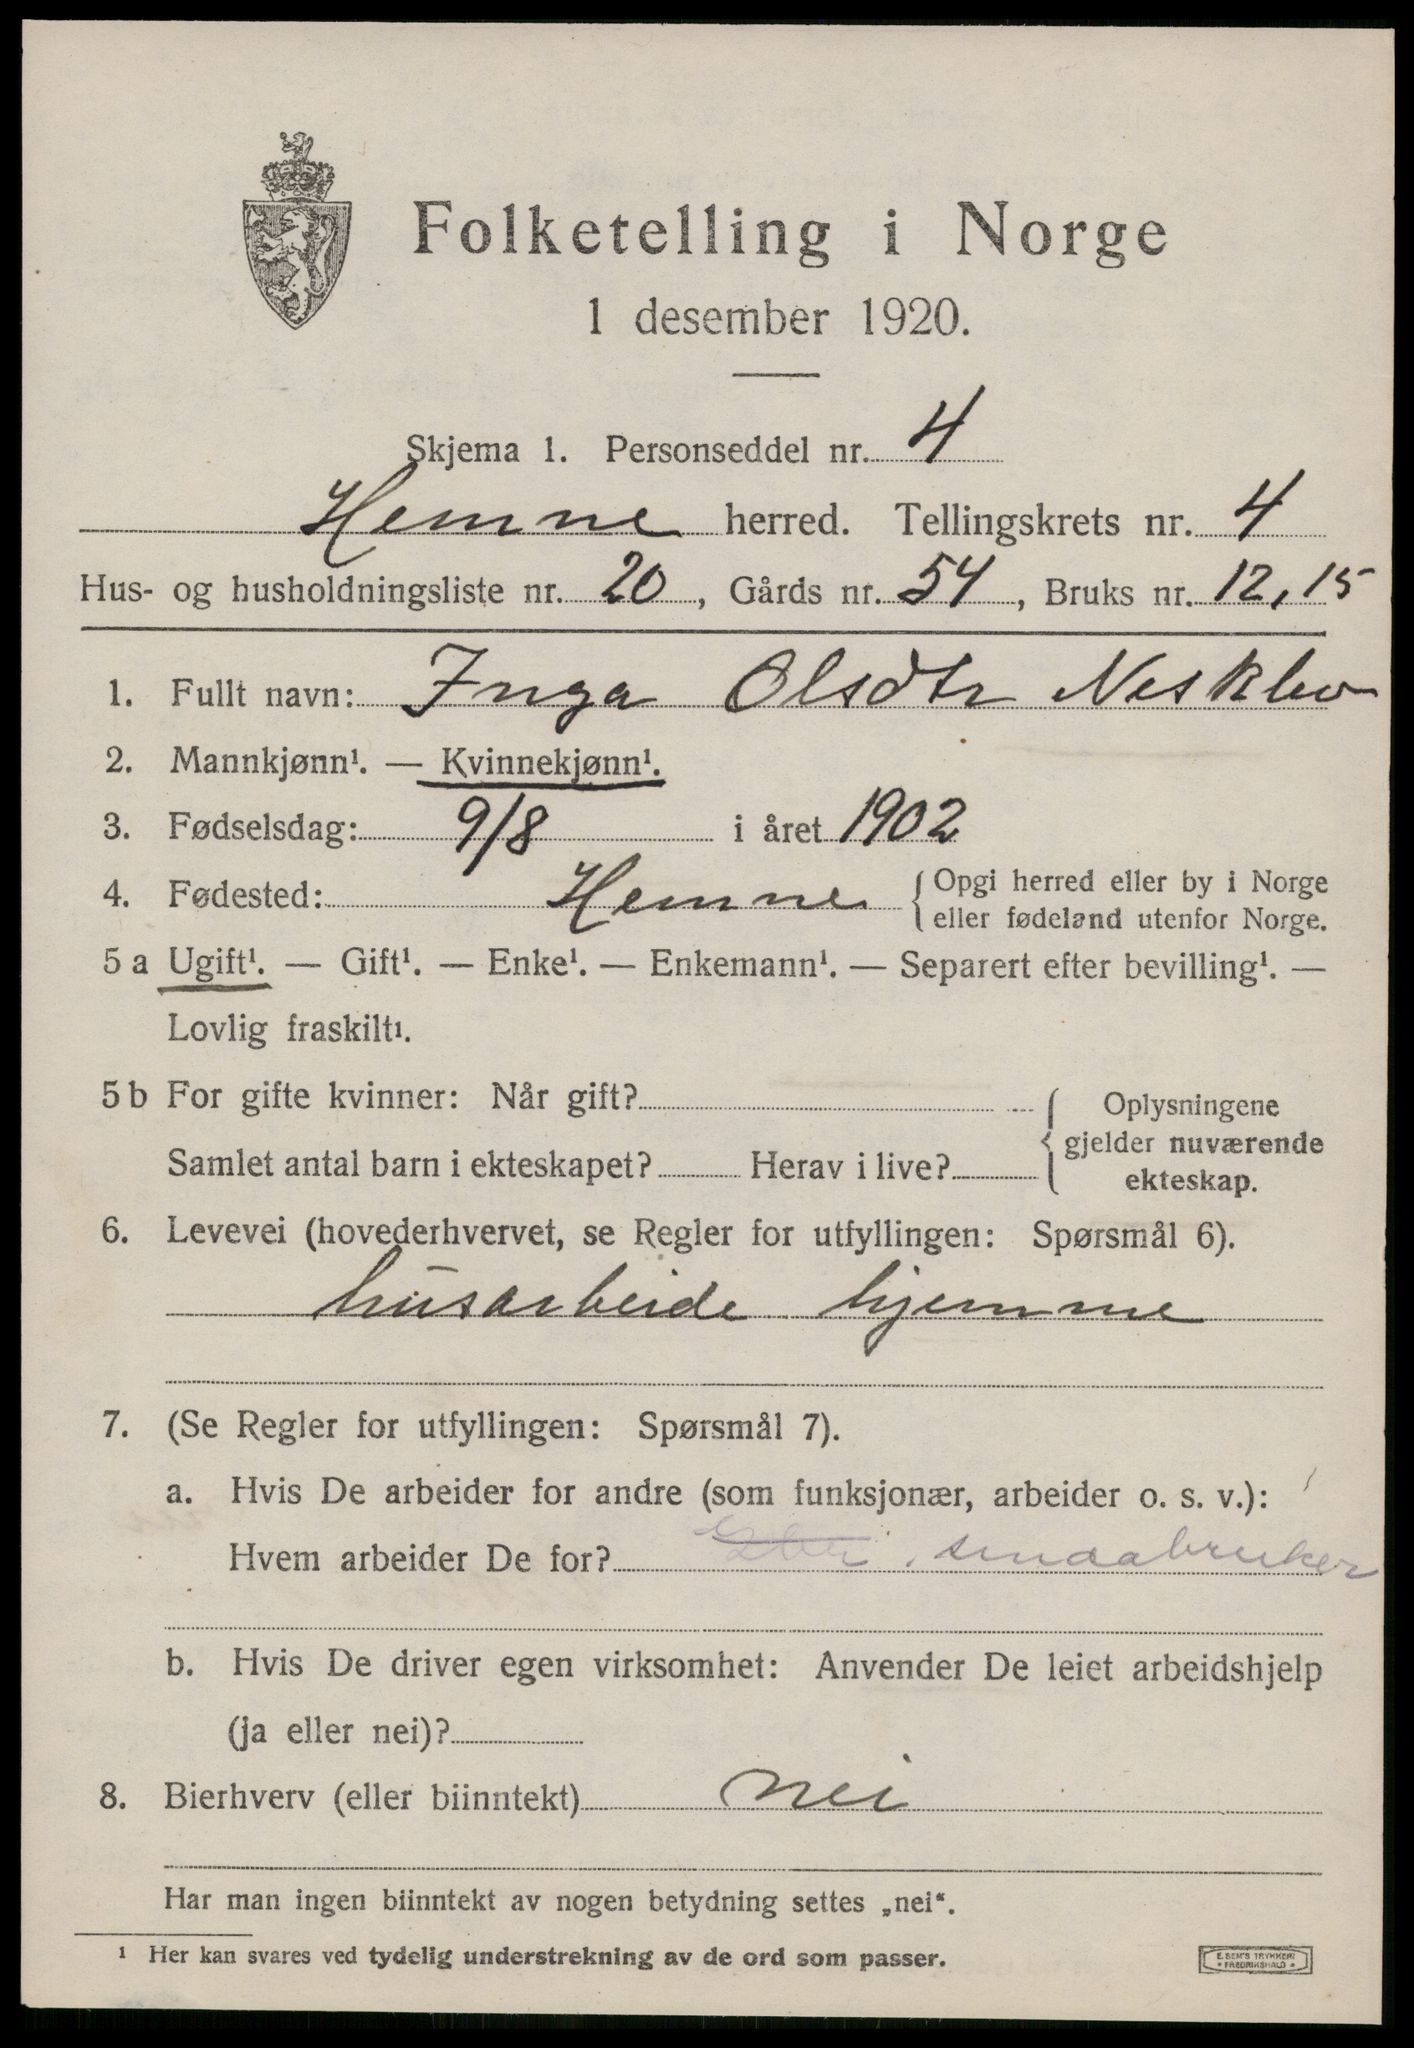 Folketelling i Norge
1 desember 1920.
Skjema 1. Personseddel nr. 4
Hemne herred. Tellingskrets nr. 4
Hus- og husholdningsliste nr. 20, Gårds nr. 54, Bruks nr. 12, 15
1. Fullt navn: Inga Olsdtr Nesklev
2. Mannkjønn¹. — Kvinnekjønn¹.
3. Fødselsdag: 9/8 i året 1902
4. Fødested: Hemne { Opgi herred eller by i Norge
eller fødeland utenfor Norge.
5 a Ugift¹. — Gift¹. — Enke¹. — Enkemann¹. — Separert efter bevilling¹. —
Lovlig fraskilt¹.
5 b For gifte kvinner: Når gift?
Samlet antal barn i ekteskapet? Herav i live?
Oplysningene
gjelder nuværende
ekteskap.
6. Levevei (hovederhvervet, se Regler for utfyllingen: Spørsmål 6).
husarbeide hjemme
7. (Se Regler for utfyllingen: Spørsmål 7).
a. Hvis De arbeider for andre (som funksjonær, arbeider o. s. v.):
Hvem arbeider De for? smaabruker
b. Hvis De driver egen virksomhet: Anvender De leiet arbeidshjelp
(ja eller nei)?
8. Bierhverv (eller biinntekt) nei
Har man ingen biinntekt av nogen betydning settes „nei“.
¹ Her kan svares ved tydelig understrekning av de ord som passer.
E. SEM'S TRYKKERI
* FREDRIKSHALD *